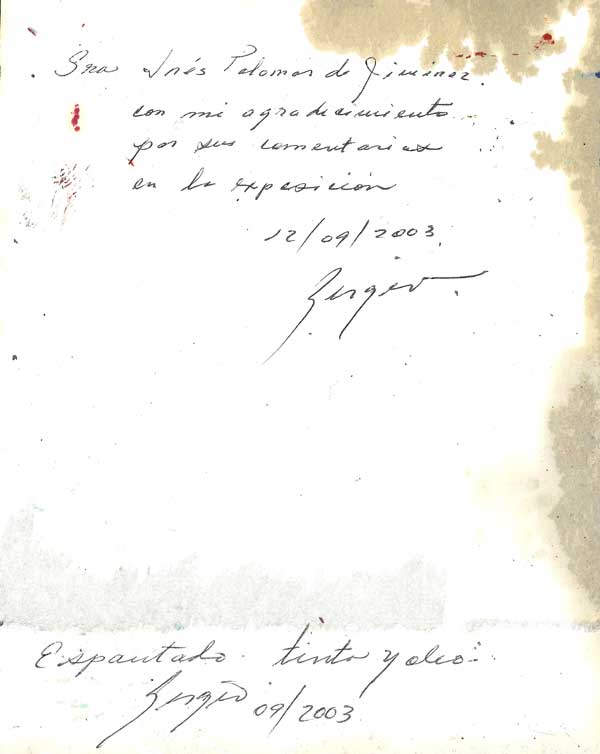 Sra Inés Palomar de Jiminez.
con mi agradecimiento
por sus comentarios
en la exposición
12/09/2003.
Sergio.
Espantado. tinta y oleo.
Sergio 09/2003